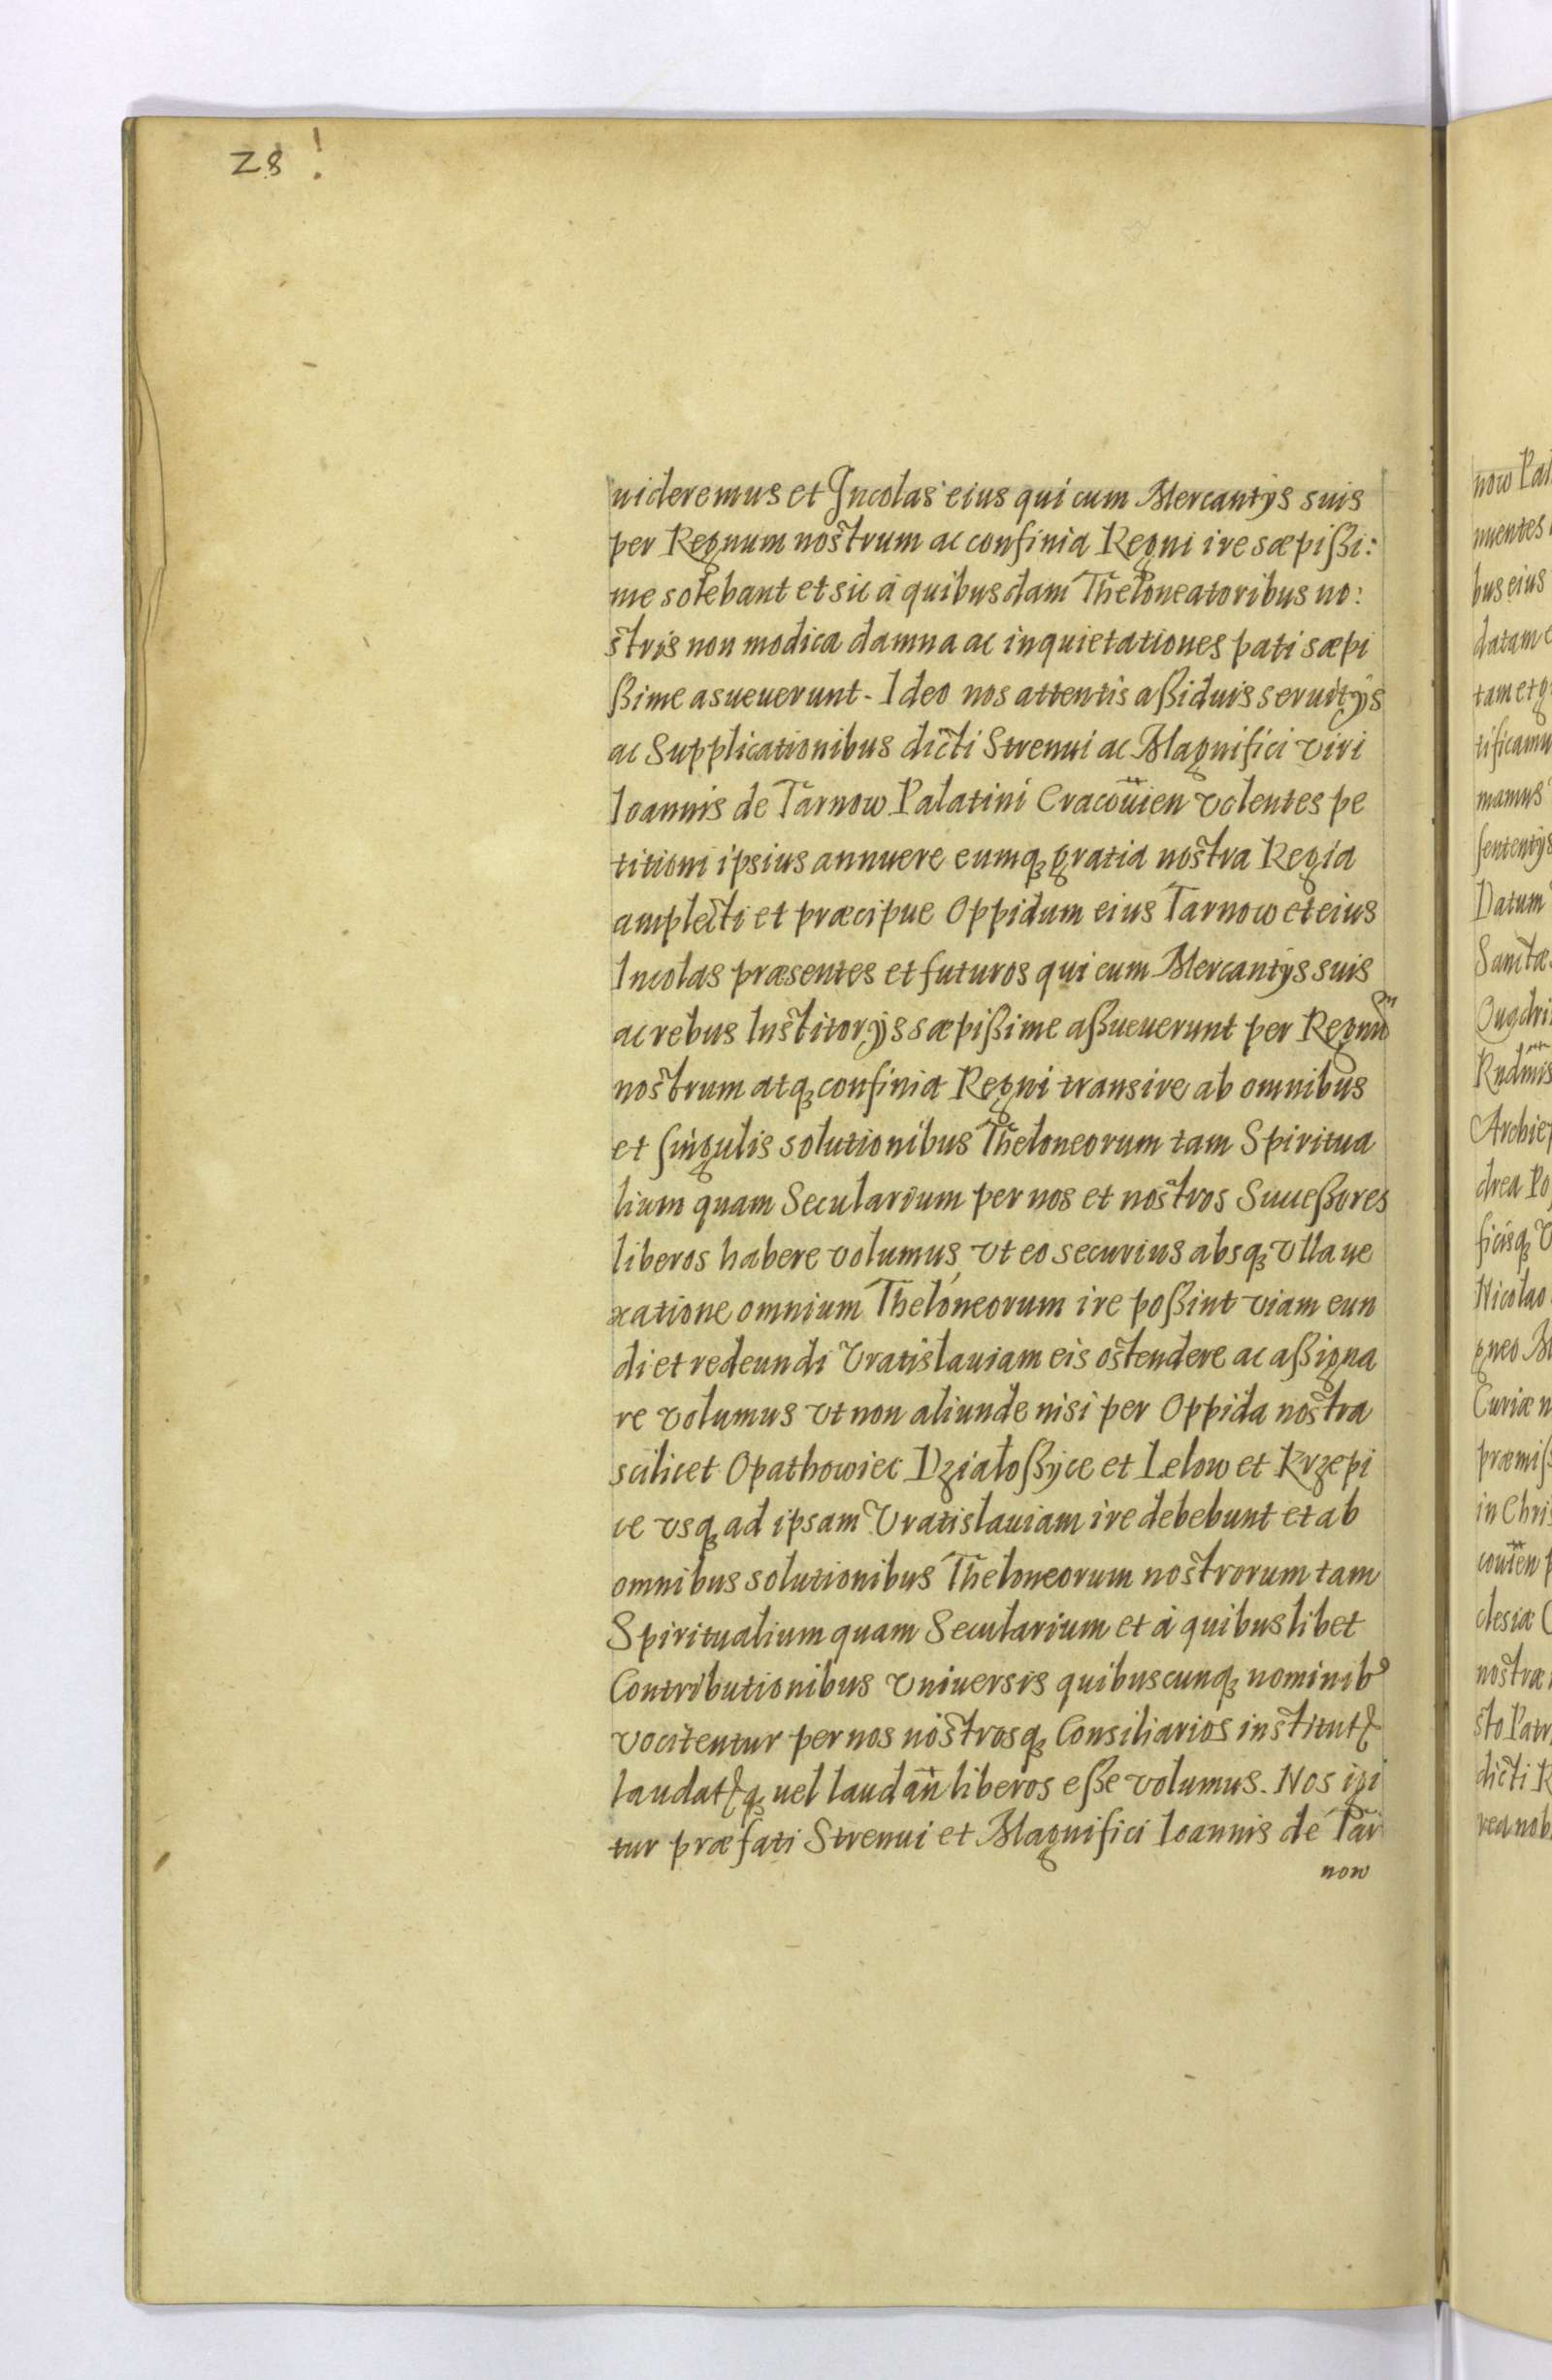 28!
uideremus et Incolas eius qui cum Mercantijs suis
per Regnum nostrum ac confinia Regni ire sæpißi:
me solebant et sic à quibusdam Theloneatoribus no:
stris non modica damna ac inquietationes pati sæpi
ßime asueuerunt. Ideo nos attentis aßiduis seruitÿs
ac Supplicationibus dicti Strenui ac Magnifici viri
Ioannis de Tarnow Palatini Cracouien volentes pe
titioni ipsius annuere eumq3 gratia nostra Regia
amplecti et præcipue Oppidum eius Tarnow et eius
Incolas præsentes et futuros qui cum Mercantÿs suis
ac rebus Institorÿs sæpißime aßueuerunt per Regnum
nostrum atq3 confinia Regni transire ab omnibus
et singulis solutionibus Theloneorum tam Spiritua
lium quam Secularium per nos et nostros Succeßores
liberos habere volumus, vt eo securius absq3 vlla ue
xatione omnium Theloneorum ire poßint viam eun
di et redeundi Vratislauiam eis ostendere ac aßigna
re volumus vt non aliunde nisi per Oppida nostra
scilicet Opathowiec Dzialoßÿce et Lelow et Krzepi
ce vsq3 ad ipsam Vratislauiam ire debebunt et ab
omnibus solutionibus Theloneorum nostrorum tam
Spiritualium quam Secularium et à quibuslibet
Contributionibus vniuersis quibuscunq3 nominib9
vocitentur per nos nostrosq3 Consiliarios institutꝭ
laudatꝭq3 uel laudan̄ liberos eße volumus. Nos igi
tur præfati Strenui et Magnifici Ioannis de Tar
now
now Pal
nuentes
bus eius
datam
tam et
tificamu
mamus
sententÿs
Datum
Sanctæ
Quadri
Rndmis
Archiep
drea Po
ficisq3 V
Nicolao
gneo M
Curiæ n
præmiß
in Chris
couien p
clesiæ C
nostræ
sto Patr
dicti K
rea nob